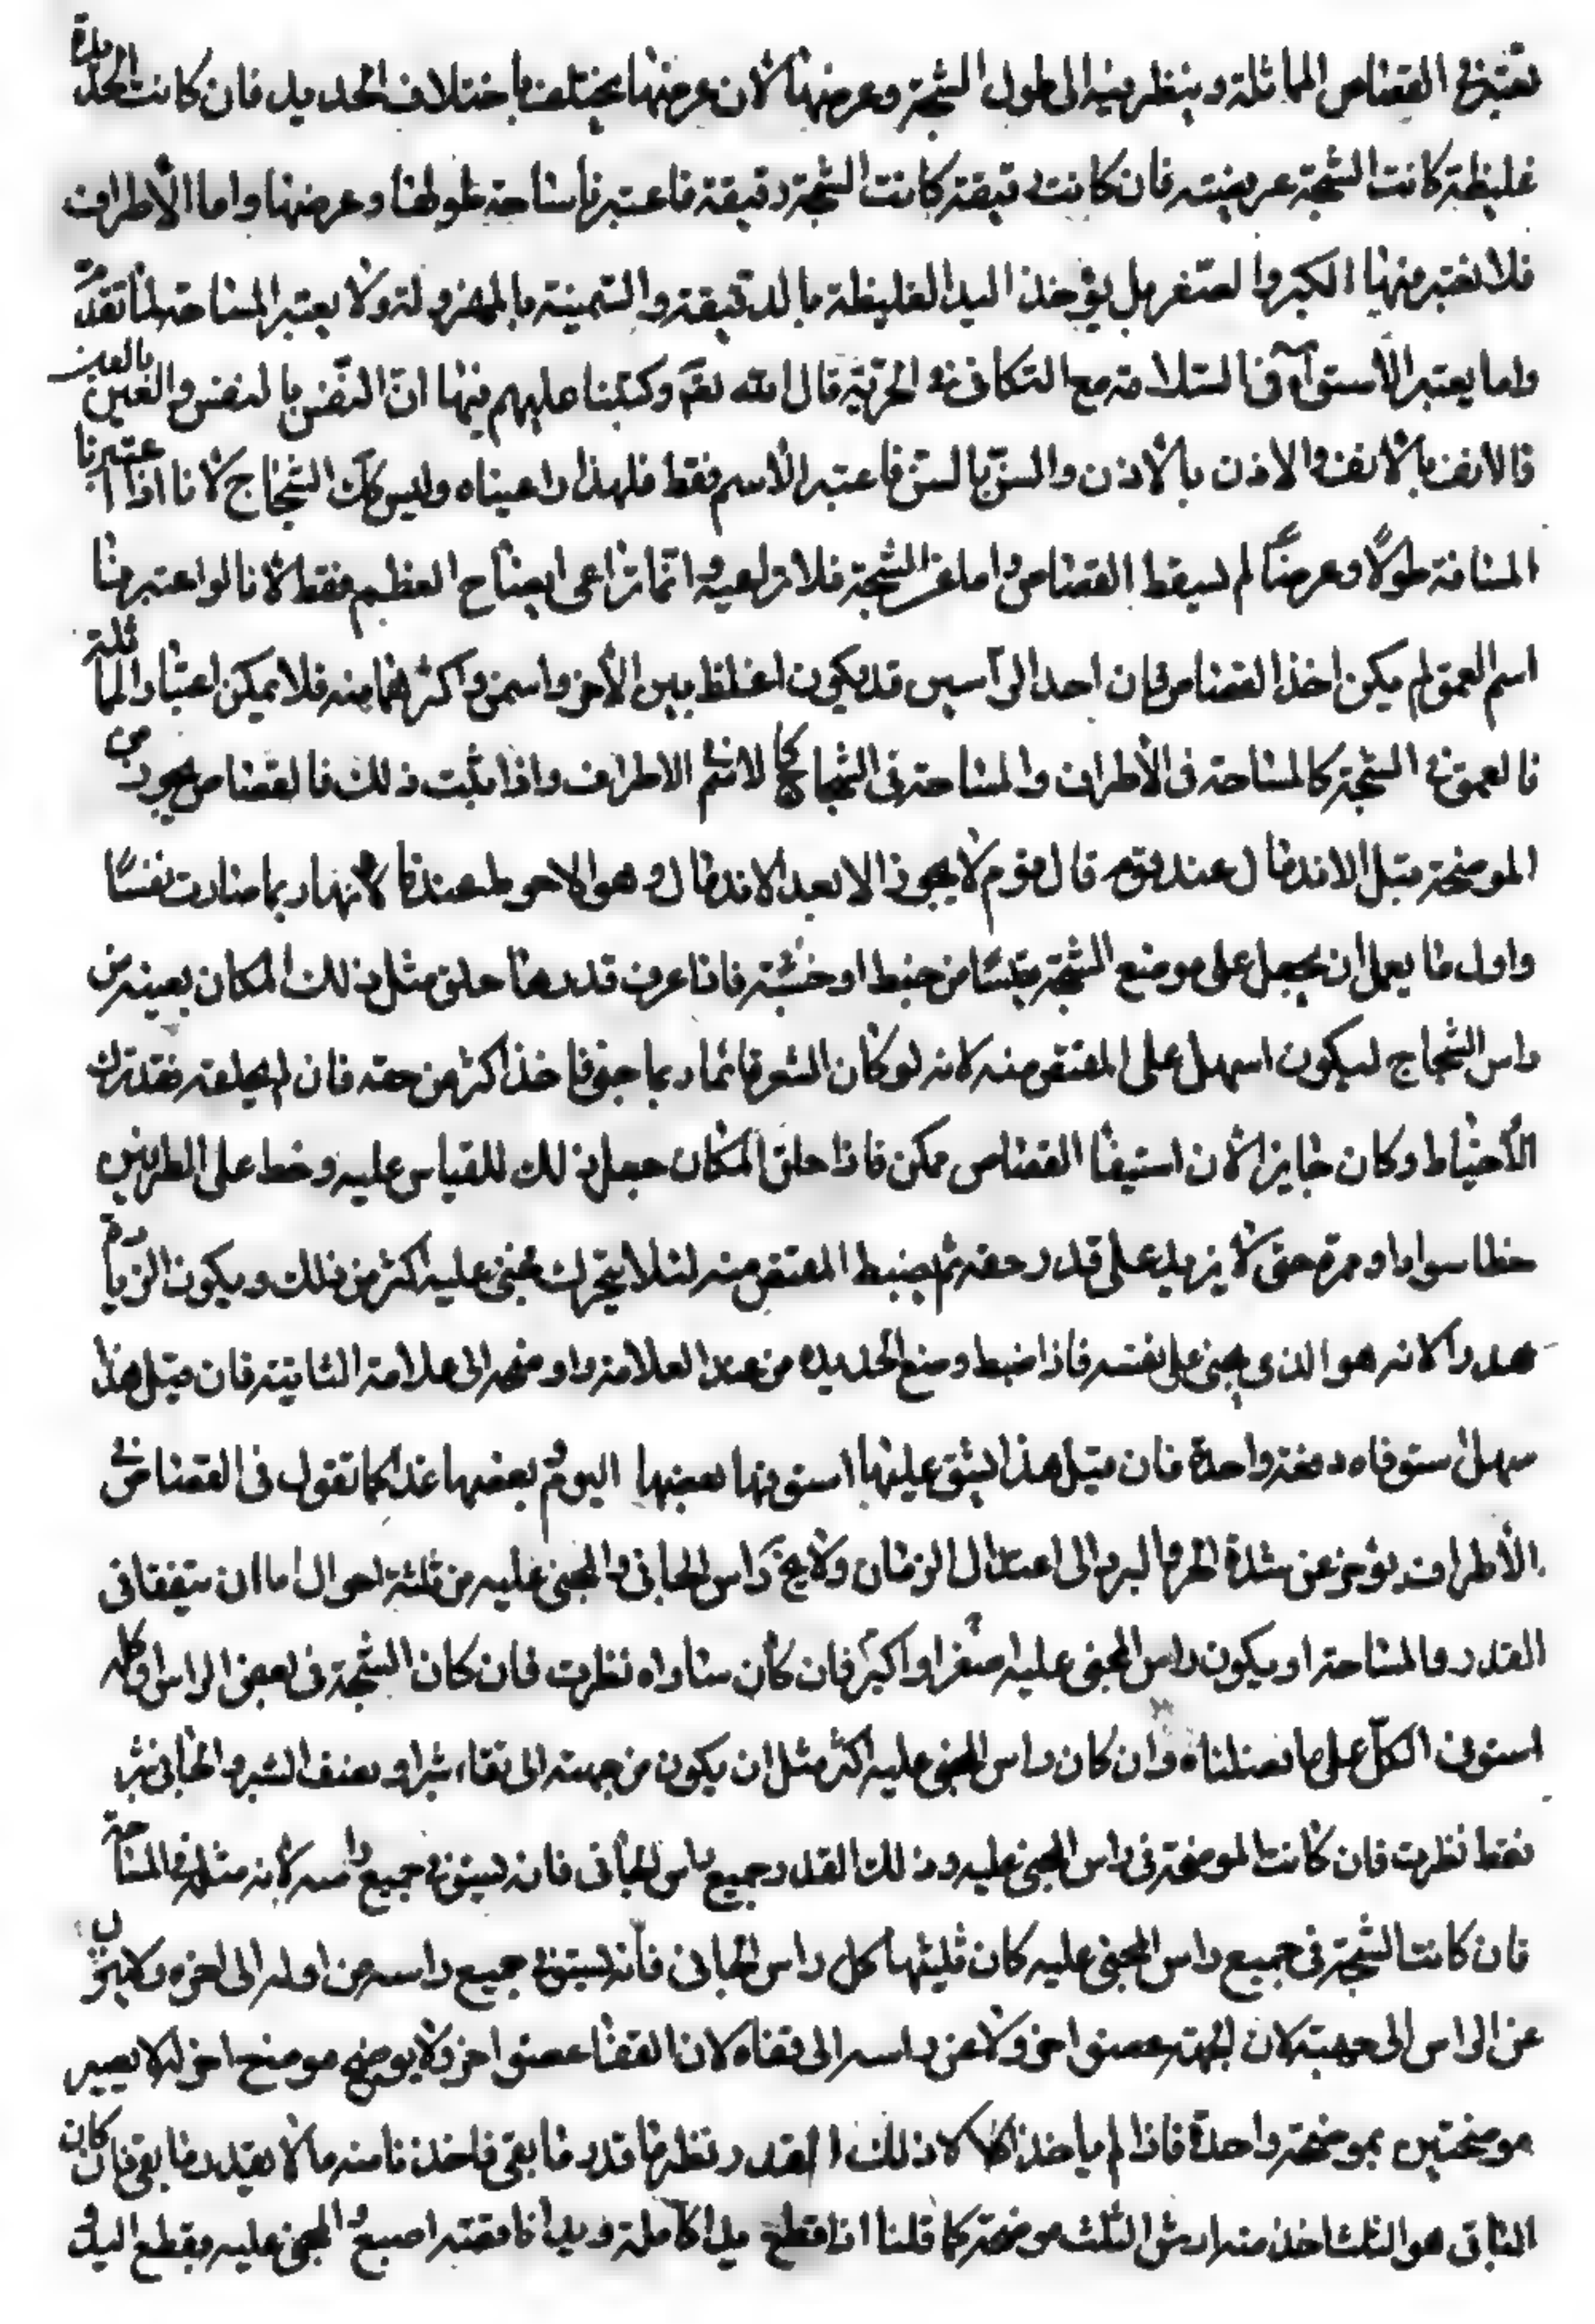 تعتبر في القصاص المماثلة وينظر فيه الى طول الشجة وعرضها لان عرضها يختلف باختلاف الحديد فان كانت الحديدة
غليظة كانت الشجة عريضة فان كانت دقيقة كانت الشجة دقيقة فاعتبرنا مساحة طولها وعرضها واما الأطراف
فلا نعتبر منها الكبر والصغر بل يؤخذ اليد الغليظة بالدقيقة والسمينة بالمهزولة ولا يعتبر المساحة لما تقدم
وانما يعتبر الأستوآء في السلامة مع التكافى في الحرية قال الله تعالى وكتبنا عليهم فيها انّ النّفس بالنفس والعين بالعين
فالانف بالانف والاذن بالأذن والسنّ بالسنّ فاعتبر الأسم فقط فلهذا راعيناه وليس كذلك الشجاج لانا اذا اعتبرنا
المساحة طولًا وعرضًا لم يسقط القصاص واما غور الشجة فلا نراعيه وانّما نراعى ايضاح العظم فقط لانا لو اعتبرنا
اسم العمق لم يكن اخذ القصاص فإن احد الرأسين قد يكون اغلظ من الأخر واسمن واكثر لحما منه فلا يمكن اعتبار المماثلة
فالعمق في الشجة كالمساحة في الأطراف والمساحة في الشجاج كالاسم الاطراف واذا ثبت ذلك فالقصاص يجوز من
الموضحة قبل الاندمال عند قوم قال قوم لا يجوز الا بعد الاندمال وهو الاحوط عندنا لانها ربما صارت نفسًا
واول ما يعمل ان يجعل على موضع الشجة مقيسًا من خيط او خشبة فاذا عرف قدرها حلق مثل ذلك المكان بعينه من
راس الشجاج ليكون اسهل على المقتص منه لانه لو كان الشعر قائما ربما جنى فاخذ اكثر من حقه فان لم يحلقه فقد ترك
الأحتياط وكان جايز الأن استيفا القصاص ممكن فاذا حلق المكان جعل ذلك للقياس عليه وخط على الطرفين
خطا سوادا وحمرة حتى لا يزيد على قدر حقه ثم يضبط المقتص منه لئلا يتحرك فيجنى عليه اكثر من ذلك ويكون الزيادة
هدرا لانه هو الذى يجنى على نفسه فاذا ضبط وضع الحديده من عند العلامة واوضحه الى علامة الثانية فان قيل هذا
سهل استوفاه دفعة واحدة فان قيل هذا يشق عليها استوفها بعضها اليوم وبعضها غدا كما تقول في القصاص في
الأطراف يؤخر عن شدة الحر والبرد الى اعتدال الزمان ولا يخ راس الجاني والمجنى عليه من ثلثة احوال اما ان يتفقا في
القدر والمساحة او يكون راس المجنى عليه اصغر او اكبر فان كان ساواه نظرت فان كان الشجة في بعض الراس او كله
استوفى الكلّ على ما فصلناه وان كان راس المجنى عليه اكثر مثل ان يكون من جبهته الى قفاه شبرا ونصف الشبر والجاني شبر
فقط نظرت فان كانت الموضحة في راس المجنى عليه وذلك القدر جميع راس الجاني فانه يستوفى جميع راسه لأنه مثله في المساحة
فان كانت الشجة في جميع راس المجنى عليه كان ثلثيها كل راس الجاني فأنه يستوفى جميع راسه من اوله الى اخره ولا ينزل
عن الراس الى جبهة لان الجبهة عضو اخر ولا عن راسه الى قفاه لان القفا عضو اخر ولا يوضح موضح اخر لئلا يصير
موضحتين بموضحة واحدة فاذا لم ياخذ الا ذلك القدر نظرنا قدر ما بقى فاخذنا منه مالا بقدر ما بقى فان كان
الباقى هو الثلث اخذ منه ارش الثلث موضحة كما قلنا اذا قطع يدا كاملة ويد اناقصة اصبع والمجنى عليه يقطع اليد و